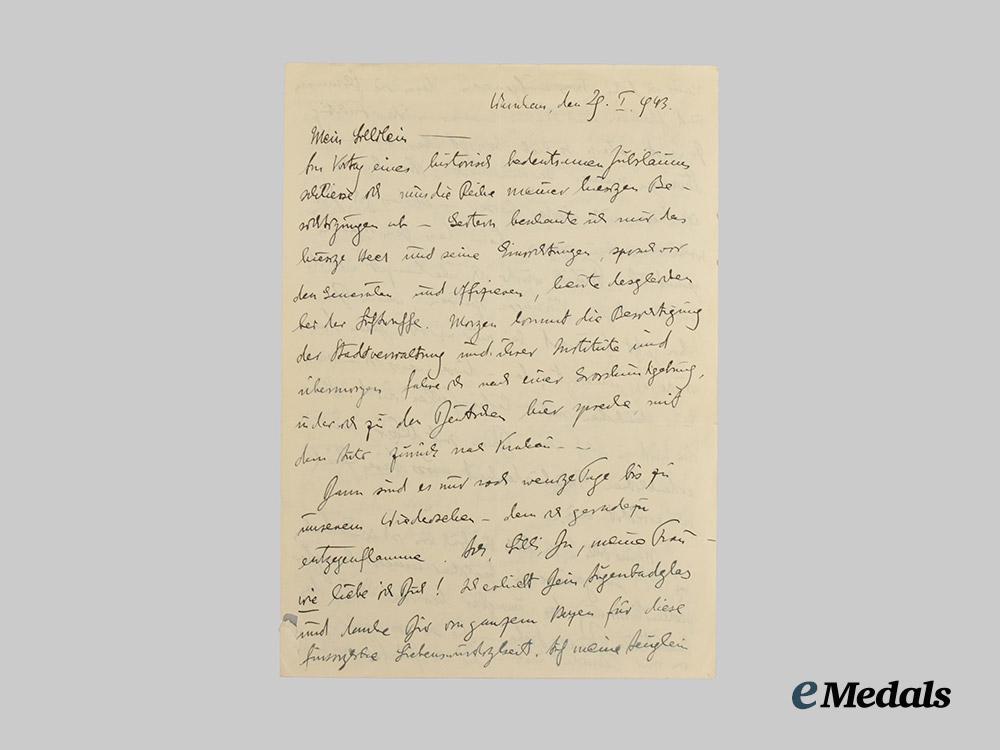 den 29. I. 1943.
Mein
Am Vortag eines historisch bedeutsamen Jubiläums
schliesse ich nun die Reihe meiner hiesigen Be-
sichtigungen ab – Gestern beschaute ich mir das
hiesige Heer und seine Einrichtungen, sprach vor
den Generälen und Offizieren, heute desgleichen
bei der Luftwaffe. Morgen kommt die Besichtigung
der Stadtverwaltung und ihrer Institute und
übermorgen fahre ich nach einer Grosskundgebung,
in der ich zu den Deutschen hier spreche mit
dem Auto zurück nach Krakau – –
Dann sind es nur noch wenige Tage bis zu
unserem Wiedersehen – dem ich geradezu
entgegenflamme. Ach, Lilli, Du, meine Frau –
wie liebe ich Dich! Ich erhielt Dein Augenbadglas
und danke Dir von ganzem Herzen für diese
fürsorgliche Liebenswürdigkeit. Auf meine Äuglein
eMedals